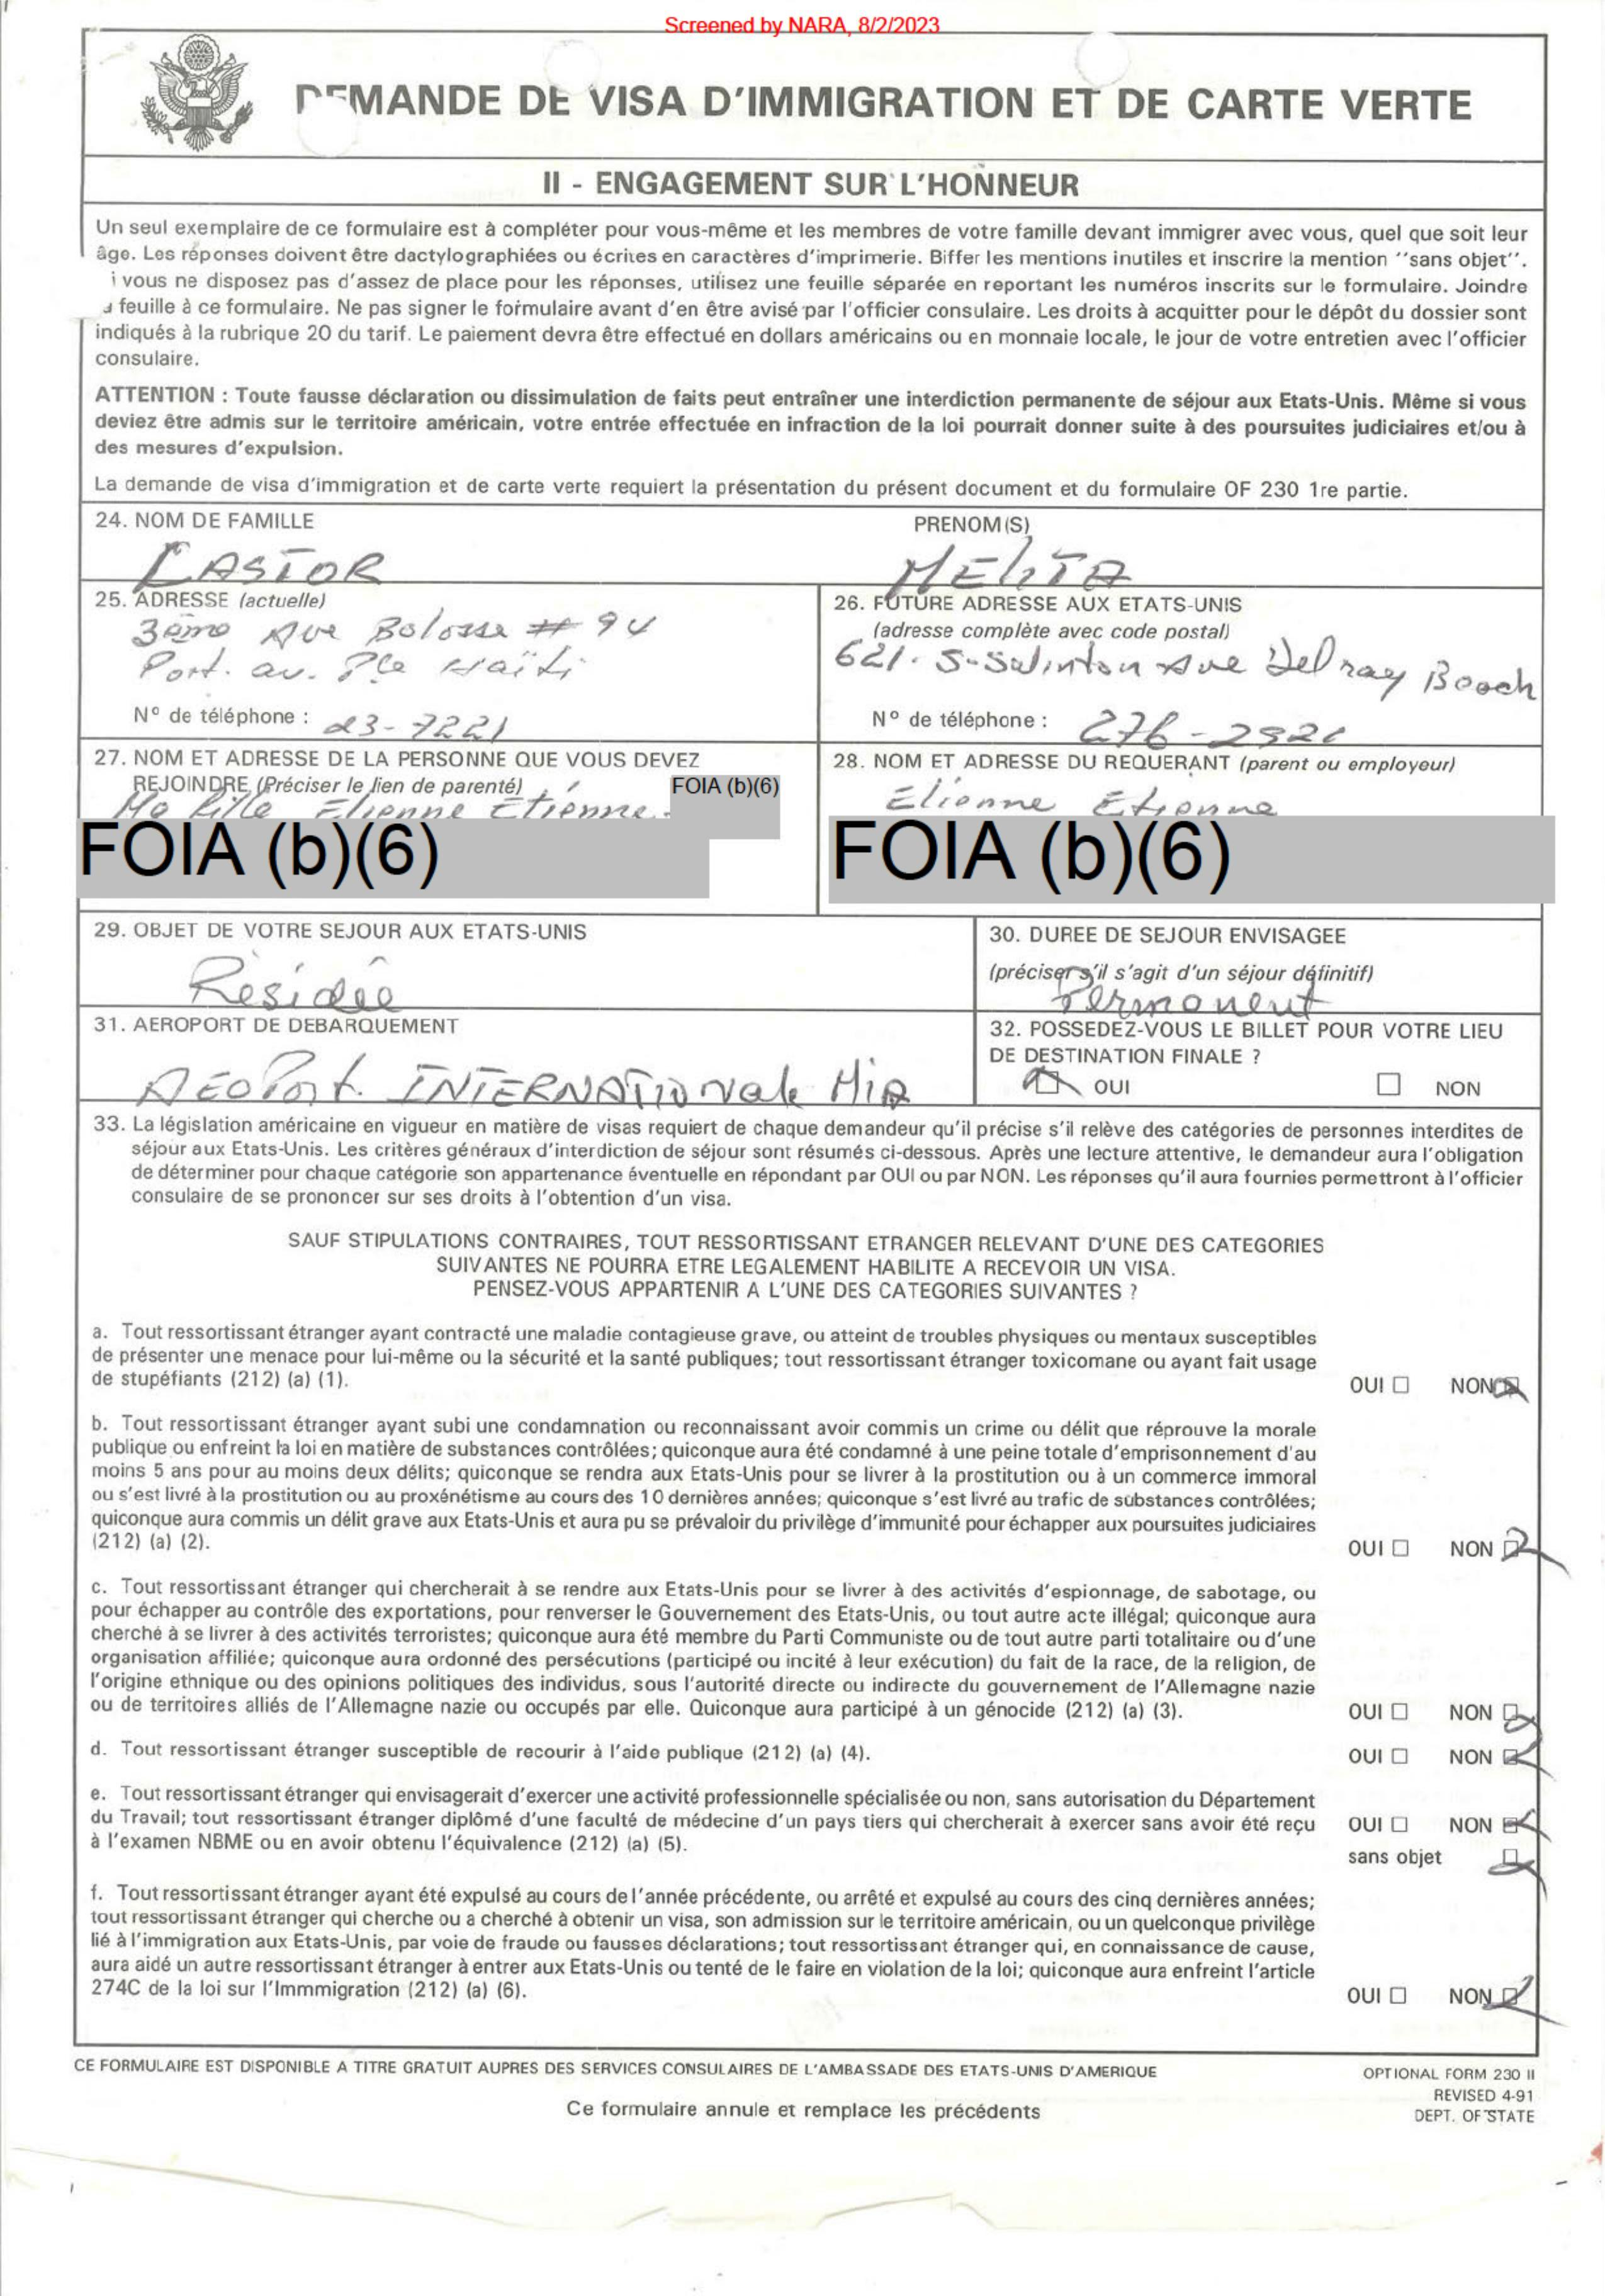 Screened by NARA, 8/2/2023
DEMANDE DE VISA D'IMMIGRATION ET DE CARTE VERTE
II - ENGAGEMENT SUR L'HONNEUR
Un seul exemplaire de ce formulaire est à compléter pour vous-même et les membres de votre famille devant immigrer avec vous, quel que soit leur
âge. Les réponses doivent être dactylographiées ou écrites en caractères d'imprimerie. Biffer les mentions inutiles et inscrire la mention ''sans objet''.
i vous ne disposez pas d'assez de place pour les réponses, utilisez une feuille séparée en reportant les numéros inscrits sur le formulaire. Joindre
feuille à ce formulaire. Ne pas signer le formulaire avant d'en être avisé par l'officier consulaire. Les droits à acquitter pour le dépôt du dossier sont
indiqués à la rubrique 20 du tarif. Le paiement devra être effectué en dollars américains ou en monnaie locale, le jour de votre entretien avec l'officier
consulaire.
ATTENTION : Toute fausse déclaration ou dissimulation de faits peut entraîner une interdiction permanente de séjour aux Etats-Unis. Même si vous
deviez être admis sur le territoire américain, votre entrée effectuée en infraction de la loi pourrait donner suite à des poursuites judiciaires et/ou à
des mesures d'expulsion.
La demande de visa d'immigration et de carte verte requiert la présentation du présent document et du formulaire OF 230 1re partie.
24. NOM DE FAMILLE PRENOM(S)
CASTOR MELITA
25. ADRESSE (actuelle)
3ème Ave Bolosse # 94
Port. au. Pce Haïti
N° de téléphone : 23-7221
26. FUTURE ADRESSE AUX ETATS-UNIS
(adresse complète avec code postal)
621. S- Ave Delray Beach
N° de téléphone : 276-
27. NOM ET ADRESSE DE LA PERSONNE QUE VOUS DEVEZ
REJOINDRE (Préciser le lien de parenté)
FOIA (b)(6)
Ma fille Elienne Etienne
FOIA (b)(6)
28. NOM ET ADRESSE DU REQUERANT (parent ou employeur)
Elienne Etienne
FOIA (b)(6)
29. OBJET DE VOTRE SEJOUR AUX ETATS-UNIS
30. DUREE DE SEJOUR ENVISAGEE
(préciser s'il s'agit d'un séjour définitif)
Permanent
31. AEROPORT DE DEBARQUEMENT
AEOPort. INTERNATIONale MiA
32. POSSEDEZ-VOUS LE BILLET POUR VOTRE LIEU
DE DESTINATION FINALE ?
OUI NON
33. La législation américaine en vigueur en matière de visas requiert de chaque demandeur qu'il précise s'il relève des catégories de personnes interdites de
séjour aux Etats-Unis. Les critères généraux d'interdiction de séjour sont résumés ci-dessous. Après une lecture attentive, le demandeur aura l'obligation
de déterminer pour chaque catégorie son appartenance éventuelle en répondant par OUI ou par NON. Les réponses qu'il aura fournies permettront à l'officier
consulaire de se prononcer sur ses droits à l'obtention d'un visa.
SAUF STIPULATIONS CONTRAIRES, TOUT RESSORTISSANT ETRANGER RELEVANT D'UNE DES CATEGORIES
SUIVANTES NE POURRA ETRE LEGALEMENT HABILITE A RECEVOIR UN VISA.
PENSEZ-VOUS APPARTENIR A L'UNE DES CATEGORIES SUIVANTES ?
a. Tout ressortissant étranger ayant contracté une maladie contagieuse grave, ou atteint de troubles physiques ou mentaux susceptibles
de présenter une menace pour lui-même ou la sécurité et la santé publiques; tout ressortissant étranger toxicomane ou ayant fait usage
de stupéfiants (212) (a) (1).
OUI NON
b. Tout ressortissant étranger ayant subi une condamnation ou reconnaissant avoir commis un crime ou délit que réprouve la morale
publique ou enfreint la loi en matière de substances contrôlées; quiconque aura été condamné à une peine totale d'emprisonnement d'au
moins 5 ans pour au moins deux délits; quiconque se rendra aux Etats-Unis pour se livrer à la prostitution ou à un commerce immoral
ou s'est livré à la prostitution ou au proxénétisme au cours des 10 dernières années; quiconque s'est livré au trafic de substances contrôlées;
quiconque aura commis un délit grave aux Etats-Unis et aura pu se prévaloir du privilège d'immunité pour échapper aux poursuites judiciaires
(212) (a) (2).
OUI NON
c. Tout ressortissant étranger qui chercherait à se rendre aux Etats-Unis pour se livrer à des activités d'espionnage, de sabotage, ou
pour échapper au contrôle des exportations, pour renverser le Gouvernement des Etats-Unis, ou tout autre acte illégal; quiconque aura
cherché à se livrer à des activités terroristes; quiconque aura été membre du Parti Communiste ou de tout autre parti totalitaire ou d'une
organisation affiliée; quiconque aura ordonné des persécutions (participé ou incité à leur exécution) du fait de la race, de la religion, de
l'origine ethnique ou des opinions politiques des individus, sous l'autorité directe ou indirecte du gouvernement de l'Allemagne nazie
ou de territoires alliés de l'Allemagne nazie ou occupés par elle. Quiconque aura participé à un génocide (212) (a) (3).
OUI NON
d. Tout ressortissant étranger susceptible de recourir à l'aide publique (212) (a) (4).
OUI NON
e. Tout ressortissant étranger qui envisagerait d'exercer une activité professionnelle spécialisée ou non, sans autorisation du Département
du Travail; tout ressortissant étranger diplômé d'une faculté de médecine d'un pays tiers qui chercherait à exercer sans avoir été reçu
à l'examen NBME ou en avoir obtenu l'équivalence (212) (a) (5).
OUI NON
sans objet
f. Tout ressortissant étranger ayant été expulsé au cours de l'année précédente, ou arrêté et expulsé au cours des cinq dernières années;
tout ressortissant étranger qui cherche ou a cherché à obtenir un visa, son admission sur le territoire américain, ou un quelconque privilège
lié à l'immigration aux Etats-Unis, par voie de fraude ou fausses déclarations; tout ressortissant étranger qui, en connaissance de cause,
aura aidé un autre ressortissant étranger à entrer aux Etats-Unis ou tenté de le faire en violation de la loi; quiconque aura enfreint l'article
274C de la loi sur l'Immmigration (212) (a) (6).
OUI NON
CE FORMULAIRE EST DISPONIBLE A TITRE GRATUIT AUPRES DES SERVICES CONSULAIRES DE L'AMBASSADE DES ETATS-UNIS D'AMERIQUE
Ce formulaire annule et remplace les précédents
OPTIONAL FORM 230 II
REVISED 4-91
DEPT. OF STATE